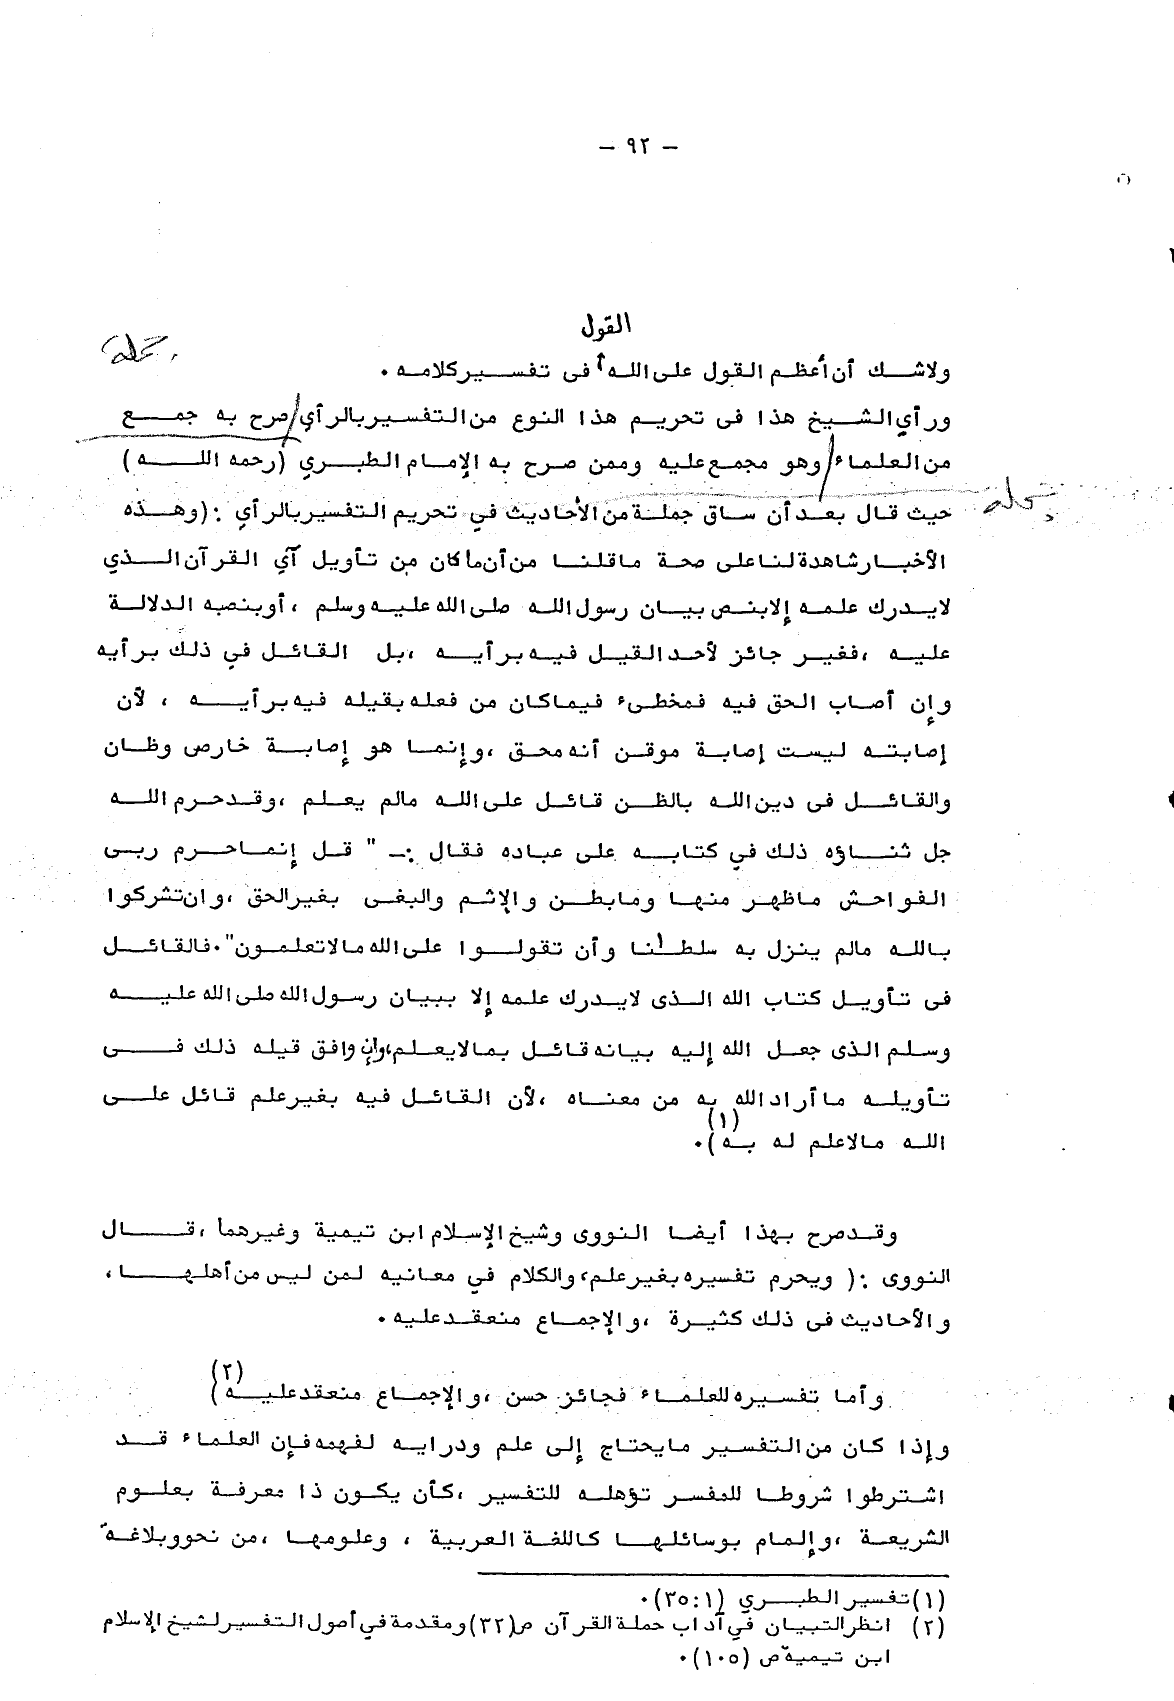 - ٩٢ -
القول
ولاشك أن أعظم القول على الله في تفسير كلامه .
ورأي الشيخ هذا في تحريم هذا النوع من التفسير بالرأي صرح به جمع
من العلماء وهو مجمع عليه وممن صرح به الإمام الطبري (رحمه الله)
حيث قال بعد أن ساق جملة من الأحاديث في تحريم التفسير بالرأي :(وهذه
الأخبار شاهدة لنا على صحة ماقلنا من أن ماكان من تأويل آي القرآن الذي
لايدرك علمه إلا بنص بيان رسول الله صلى الله عليه وسلم ، أو بنصبه الدلالة
عليه ،فغير جائز لأحد القيل فيه برأيه ،بل القائل في ذلك برأيه
وإن أصاب الحق فيه فمخطىء فيما كان من فعله بقيله فيه برأيه ، لأن
إصابته ليست إصابة موقن أنه محق ،وإنما هو إصابة خارص وظان
والقائل في دين الله بالظن قائل على الله مالم يعلم ،وقد حرم الله
جل ثناؤه ذلك في كتابه على عباده فقال :ـ " قل إنما حرم ربي
الفواحش ماظهر منها ومابطن والإثم والبغي بغير الحق ،وان تشركوا
بالله مالم ينزل به سلطانا وأن تقولوا على الله مالاتعلمون".فالقائل
في تأويل كتاب الله الذي لايدرك علمه إلا ببيان رسول الله صلى الله عليه
وسلم الذي جعل الله إليه بيانه قائل بما لايعلم،وإن وافق قيله ذلك في
تأويله ما أراد الله به من معناه ،لأن القائل فيه بغير علم قائل على
الله مالاعلم له به)(١).
وقد صرح بهذا أيضا النووي وشيخ الإسلام ابن تيمية وغيرهما ،قال
النووي :( ويحرم تفسيره بغير علم، والكلام في معانيه لمن ليس من أهلها ،
والأحاديث في ذلك كثيرة ،والإجماع منعقد عليه .
وأما تفسيره للعلماء فجائز حسن ،والإجماع منعقد عليه)(٢)
وإذا كان من التفسير مايحتاج إلى علم ودراية لفهمه فإن العلماء قد
اشترطوا شروطا للمفسر تؤهله للتفسير ،كأن يكون ذا معرفة بعلوم
الشريعة ،وإلمام بوسائلها كاللغة العربية ، وعلومها ،من نحو وبلاغة
(١)تفسير الطبري (٣٥:١).
(٢) انظر التبيان في آداب حملة القرآن ص(٢٢)ومقدمة في أصول التفسير لشيخ الإسلام
ابن تيمية ص (١٠٥).